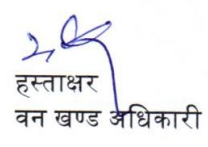 हस्ताक्षर
वन खण्ड अधिकारी